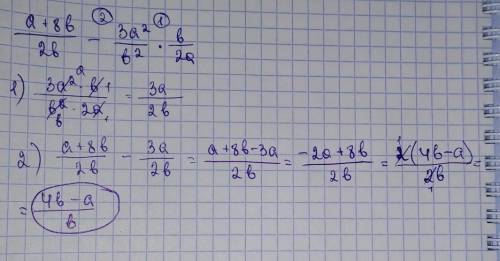 (a+8b)/(2b) −② (3a²)/(b²) ·① b/(2a)
1) (3a²·b)/(b²·2a) = 3a/(2b)
2) (a+8b)/(2b) − 3a/(2b) = (a+8b−3a)/(2b) = (−2a+8b)/(2b) = 2(4b−a)/(2b) =
= (4b−a)/b